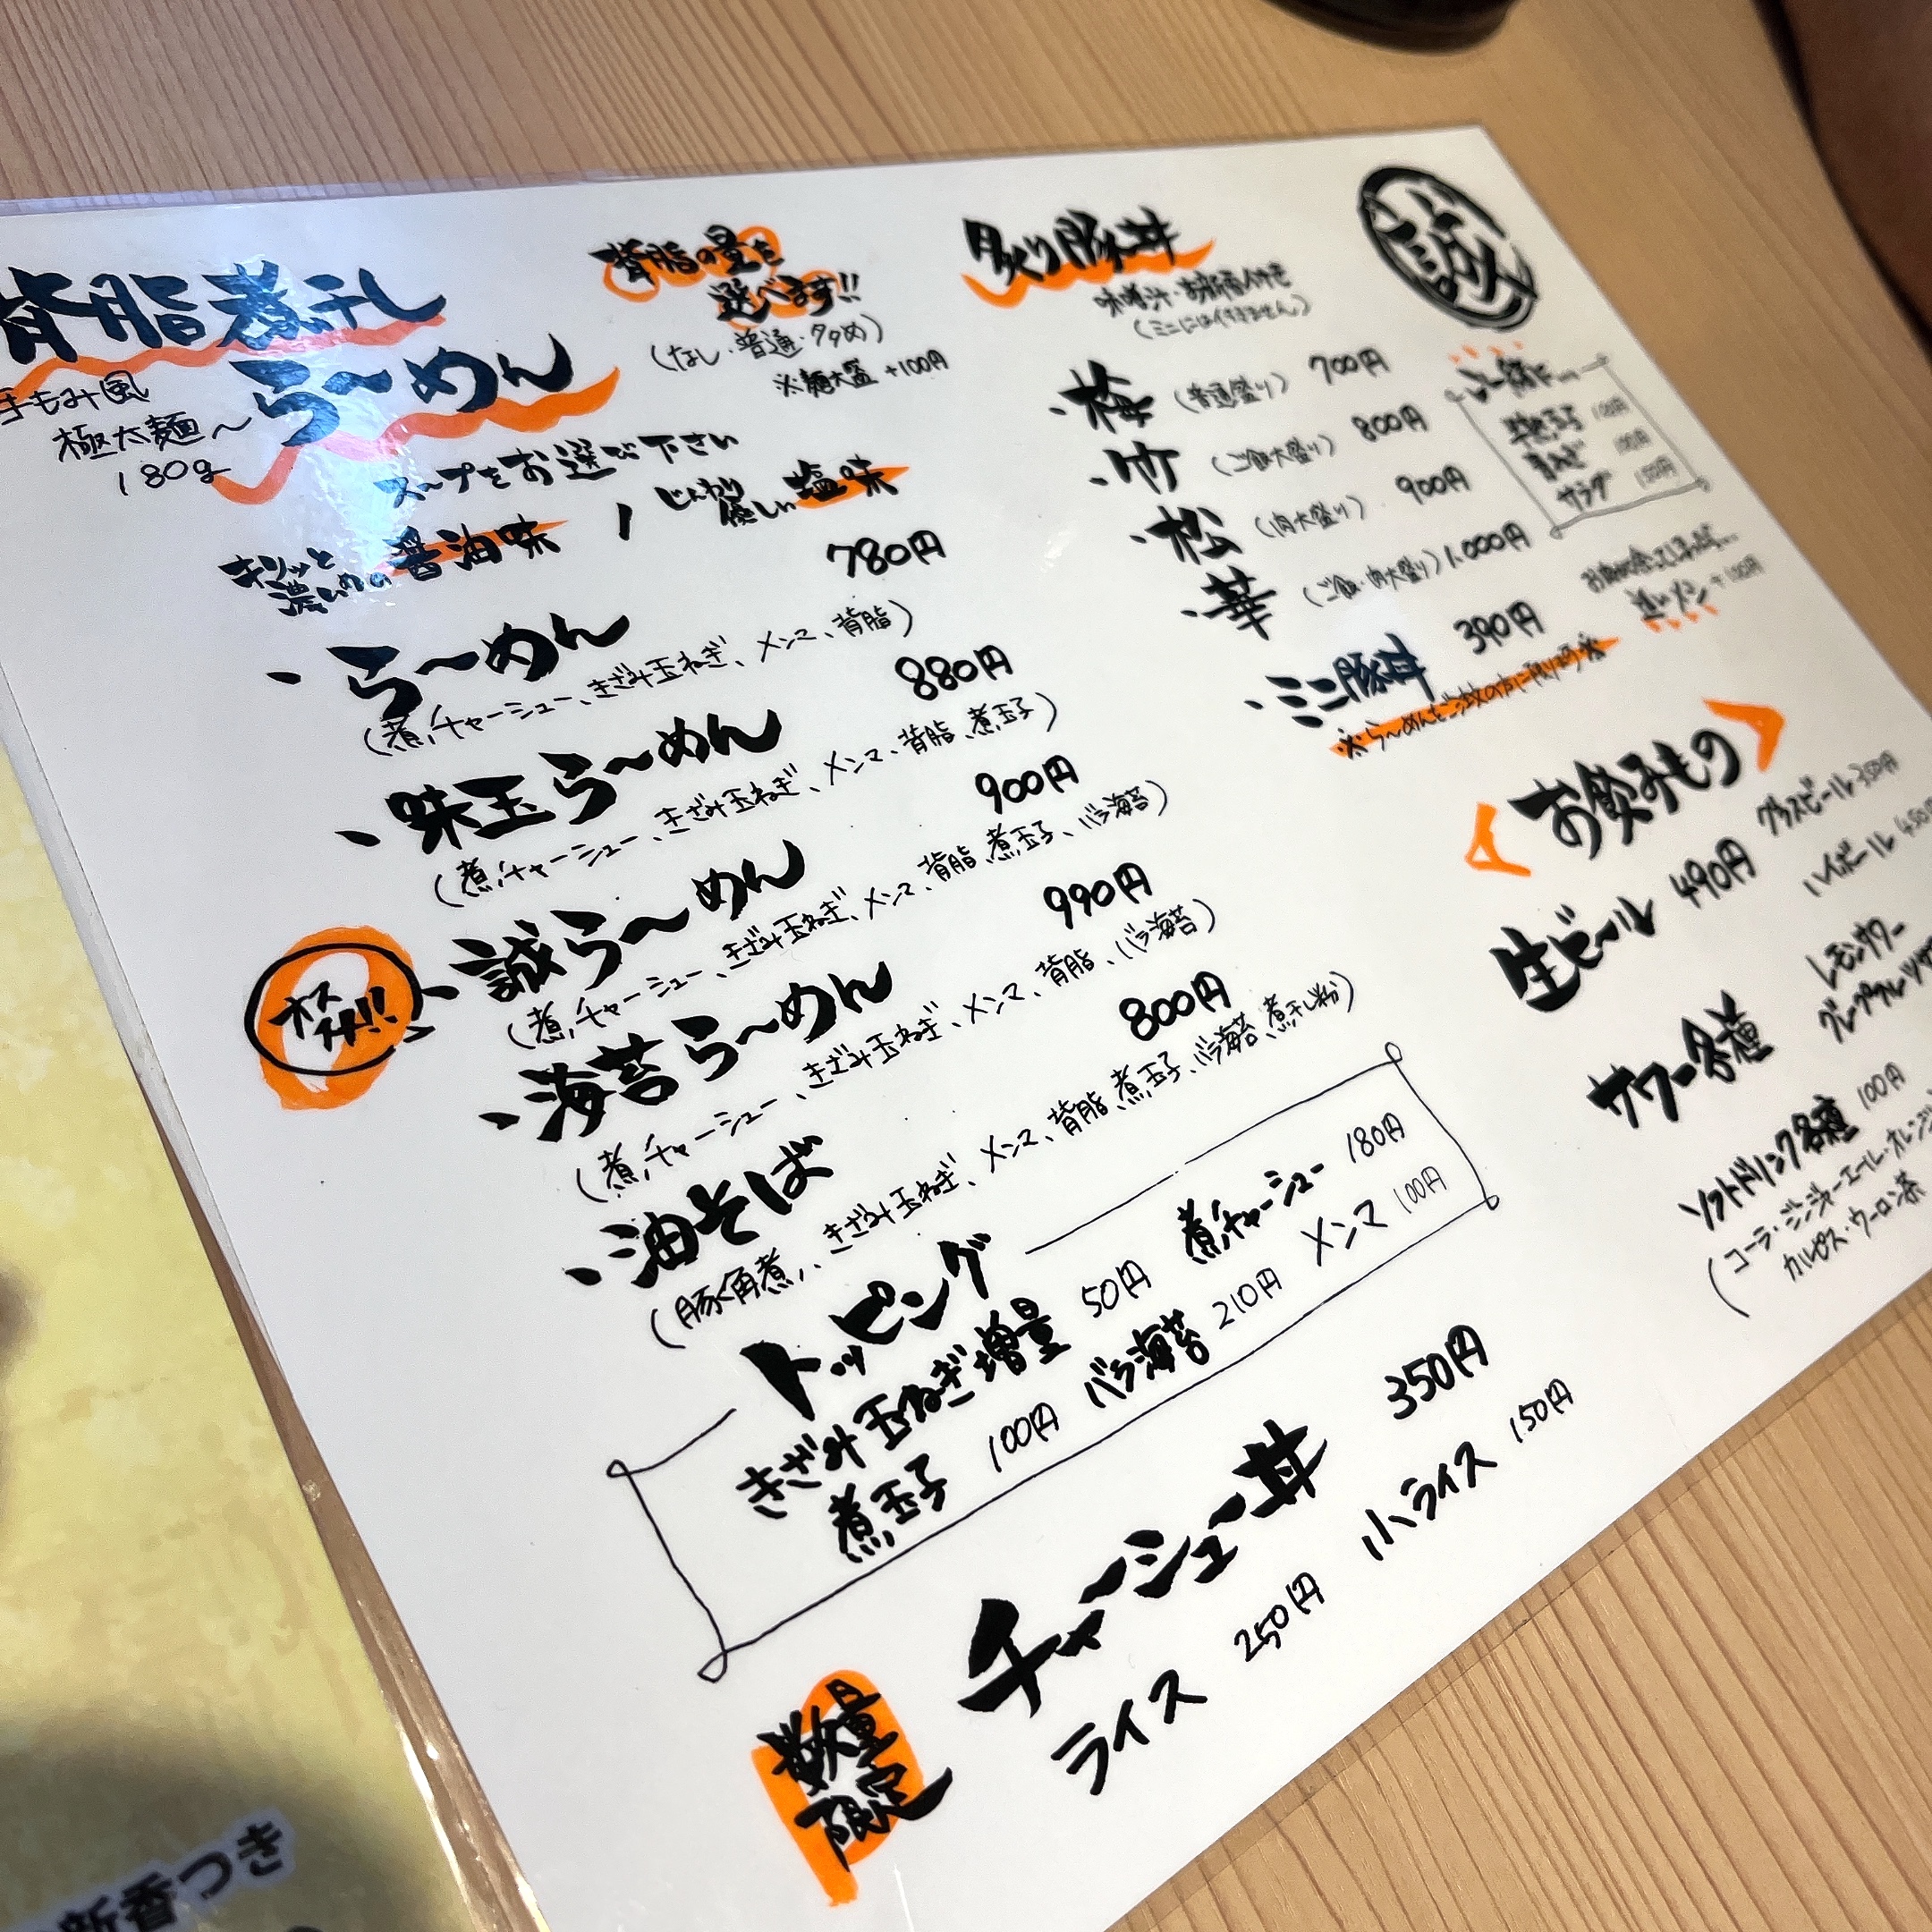 背脂煮干し
らーめん
手もみ風
極太麺〜
180g
背脂の量を
選べます!!
(なし・普通・多め)
※麺大盛 +100円
スープをお選び下さい
キリッと
濃いめの醤油味 / じんわり
優しい塩味
・らーめん 780円
(煮チャーシュー、きざみ玉ねぎ、メンマ、背脂)
・味玉らーめん 880円
(煮チャーシュー、きざみ玉ねぎ、メンマ、背脂、煮玉子)
オス
スメ!!
・誠らーめん 900円
(煮チャーシュー、きざみ玉ねぎ、メンマ、背脂、煮玉子、バラ海苔)
・海苔らーめん 990円
(煮チャーシュー、きざみ玉ねぎ、メンマ、背脂、バラ海苔)
・油そば 800円
(豚角煮、きざみ玉ねぎ、メンマ、背脂、煮玉子、バラ海苔、煮干し粉)
トッピング
きざみ玉ねぎ増量 50円 煮チャーシュー 180円
煮玉子 100円 バラ海苔 210円 メンマ 100円
数量
限定
チャーシュー丼 350円
ライス 250円 小ライス 150円
炙り豚丼
味噌汁・お新香付き
(ミニには付きません)
誠
・梅 (普通盛り) 700円
・竹 (ご飯大盛り) 800円
・松 (肉大盛り) 900円
・華 (ご飯・肉大盛り) 1,000円
・ミニ豚丼 390円
※らーめんをご注文の方に限ります※
ご一緒に…
半熟玉子
サラダ 150円
追いメシ +100円
お飲みもの
生ビール 490円 グラスビール 350円
ハイボール
サワー各種
レモンサワー
ソフトドリンク各種 100円
(コーラ・ジンジャーエール・オレンジ
カルピス・ウーロン茶
新香つき